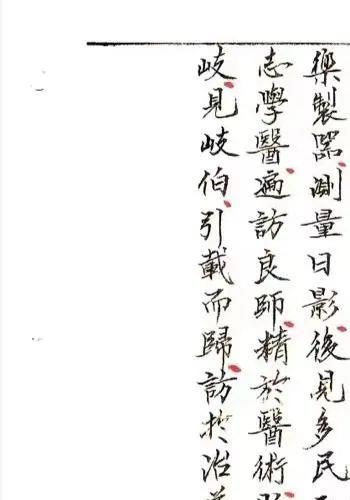 樂製器測量日影後見多民
志學醫遍訪良師精於醫術
岐見岐伯引載而歸訪於治